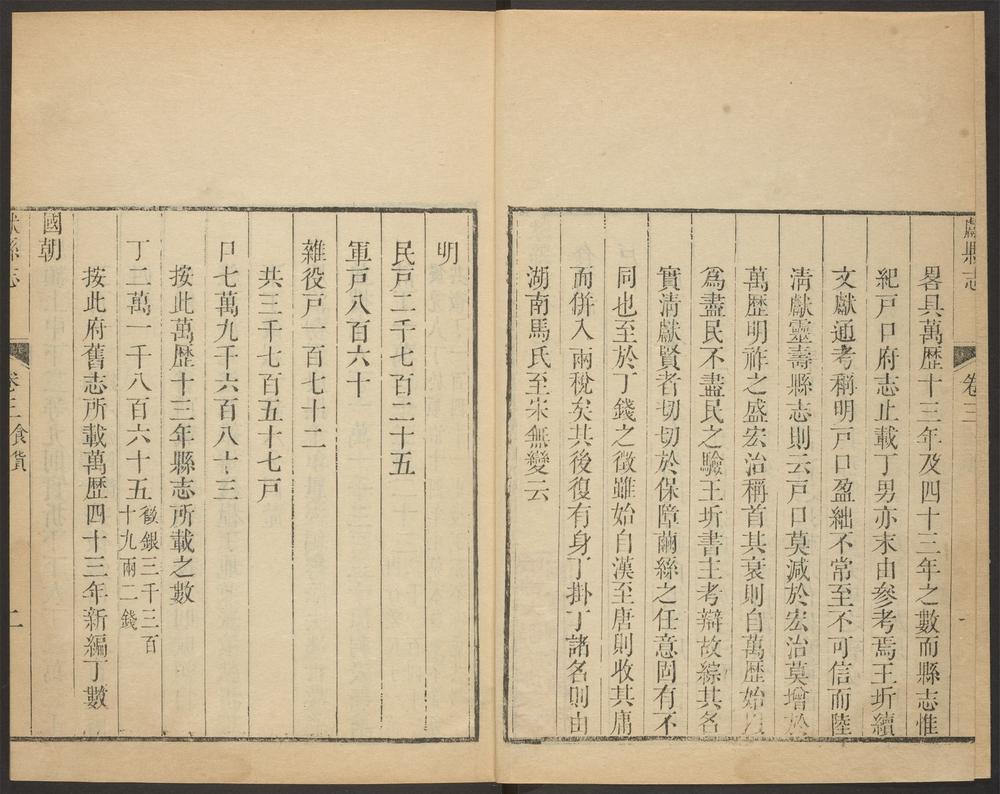 獻縣志
卷三
畧具萬歷十三年及四十三年之數而縣志惟
紀戸口府志止載丁男亦末由參考焉王圻續
文獻通考稱明戸口盈絀不常至不可信而陸
清獻靈壽縣志則云戸口莫減於宏治莫增於
萬歷明祚之盛宏治稱首其衰則自萬歷始
爲盡民不盡民之驗王圻書主考辯故綜其名
實清獻賢者切切於保障繭絲之任意固有不
同也至於丁錢之徵雖始自漢至唐則收其庸
而併入兩稅矣其後復有身丁掛丁諸名則由
湖南馬氏至宋無變云
明
民戸二千七百二十五
軍戸八百六十
雜役戸一百七十二
共三千七百五十七戸
口七萬九千六百八十三
按此萬歷十三年縣志所載之數
丁二萬一千八百六十五徵銀三千三百
十九兩二錢
按此府舊志所載萬歷四十三年新編丁數
國朝
獻縣志
卷三食貨
二